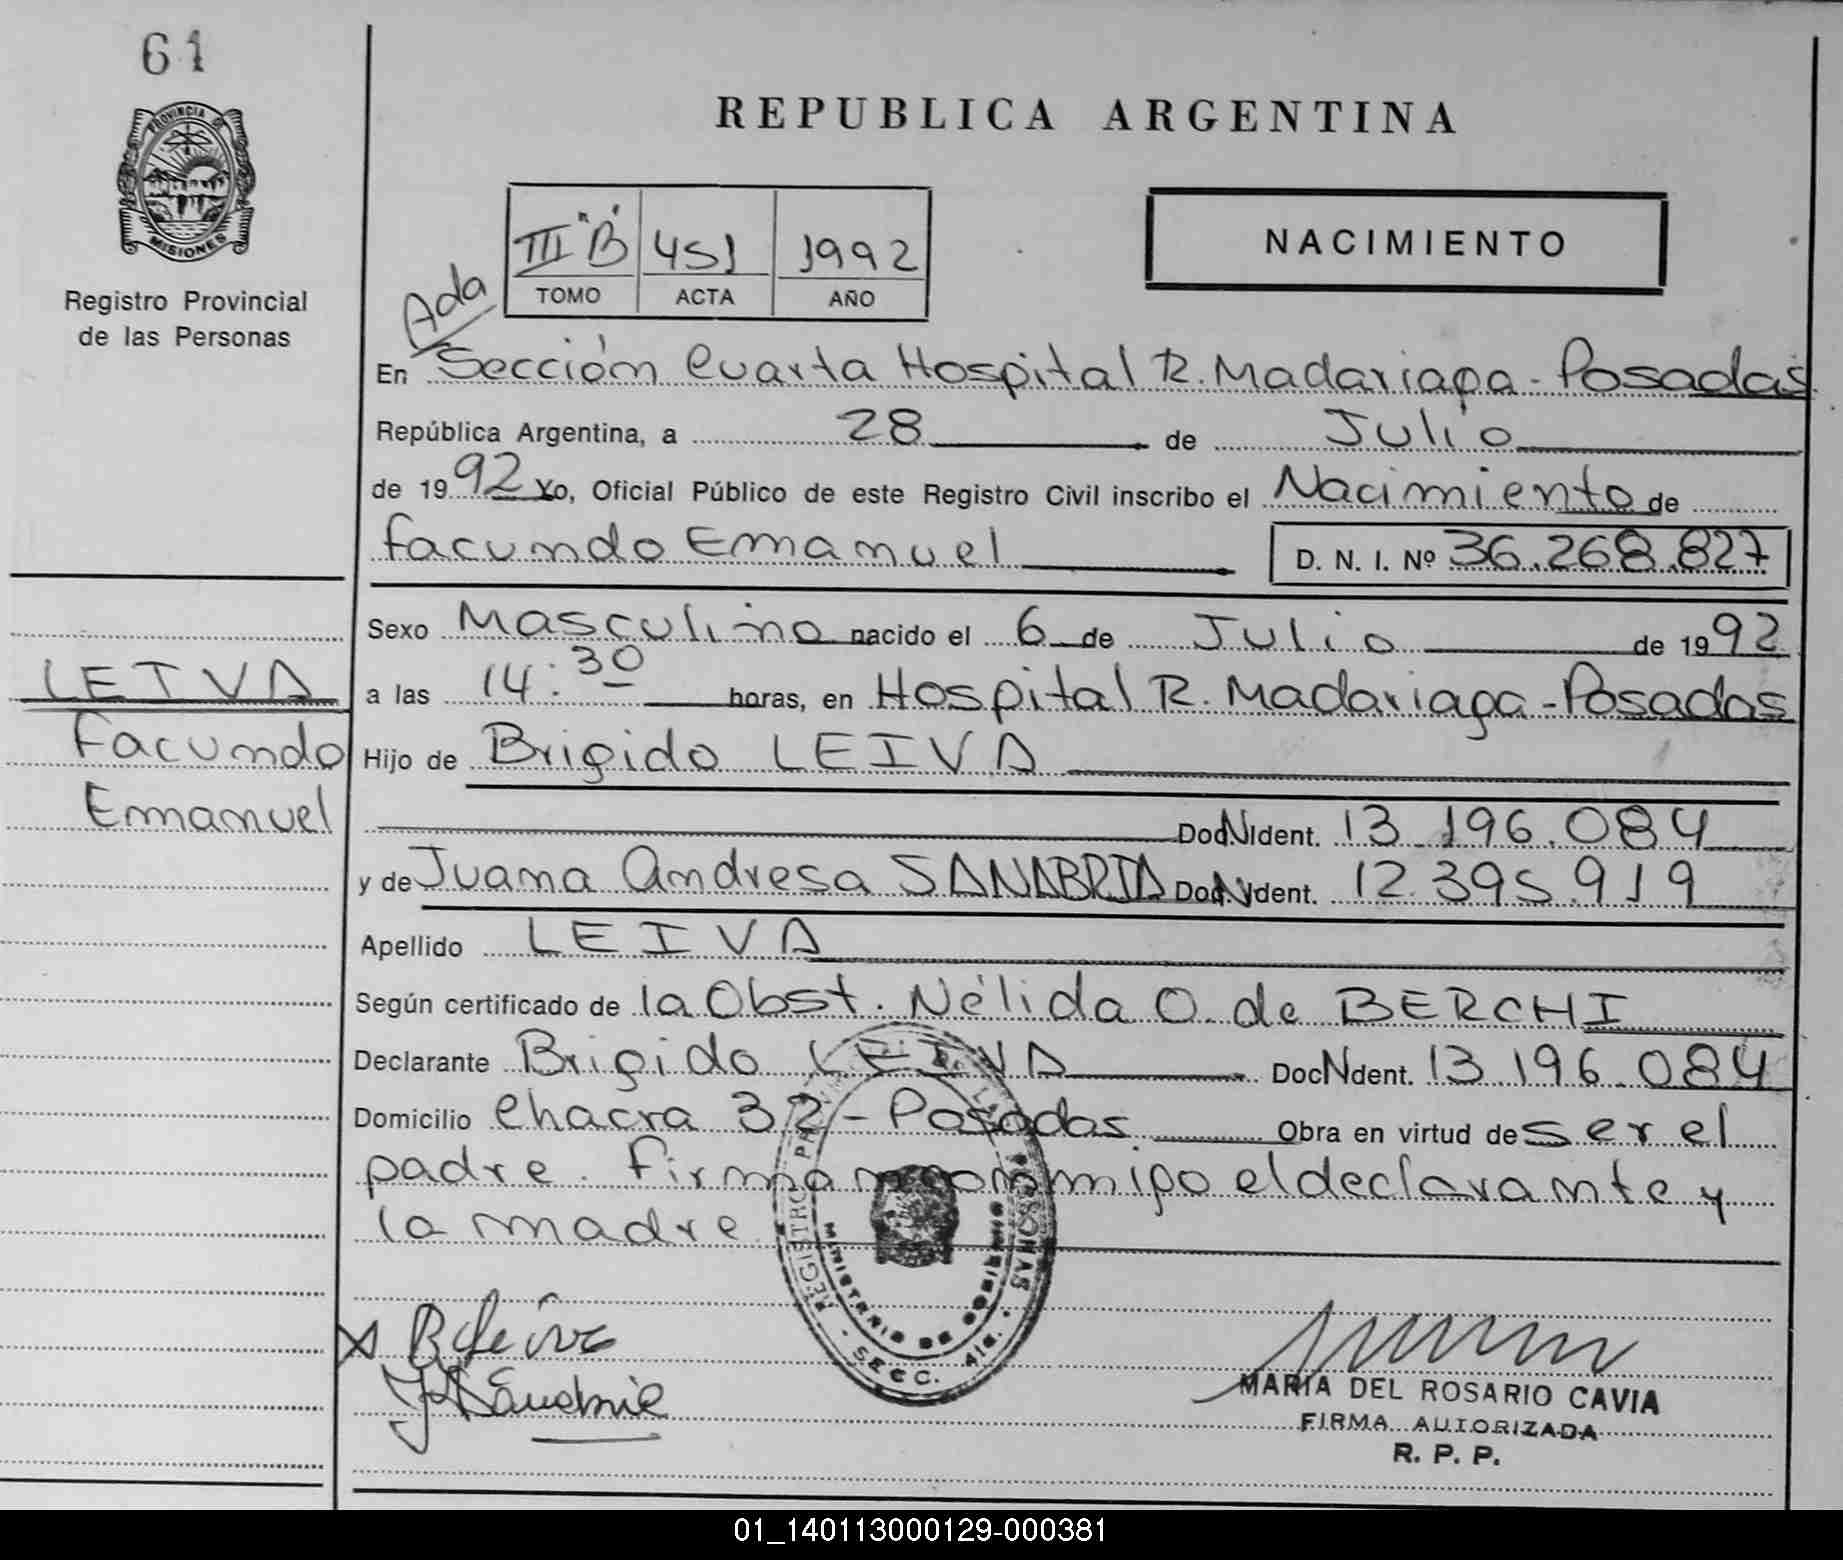 61
PROVINCIA DE
MISIONES
Registro Provincial
de las Personas
REPUBLICA ARGENTINA
III "B" 451 1992
TOMO ACTA AÑO
NACIMIENTO
Ada
En Sección Cuarta Hospital R. Madariaga - Posadas
República Argentina, a 28 de Julio
de 1992 Yo, Oficial Público de este Registro Civil inscribo el Nacimiento de
Facundo Emanuel D. N. I. Nº 36.268.827
Sexo Masculino nacido el 6 de Julio de 1992
LEIVA
a las 14:30 horas, en Hospital R. Madariaga - Posadas
Facundo
Hijo de Brigido LEIVA
Emanuel
Doc N Ident. 13.196.084
y de Juana Andresa SANABRIA Doc N Ident. 12.395.919
Apellido LEIVA
Según certificado de la Obst. Nélida O. de BERCHI
Declarante Brigido LEIVA Doc N Ident. 13.196.084
Domicilio Chacra 32 - Posadas Obra en virtud de ser el
padre. Firman conmigo el declarante y
la madre
REGISTRO PROVINCIAL DE LAS PERSONAS
MINISTERIO DE GOBIERNO
SECC. 4ta.
B Leiva
J A Sanabria
MARIA DEL ROSARIO CAVIA
FIRMA AUTORIZADA
R. P. P.
01_140113000129-000381